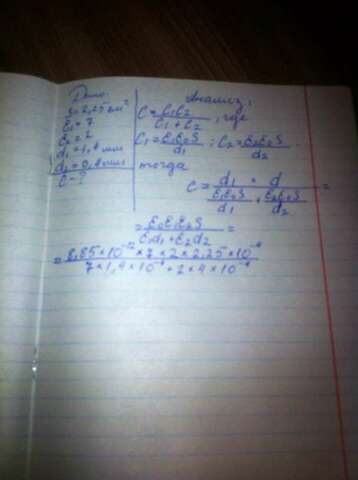 Дано:
S = 2,25 см²
ε₁ = 7
ε₂ = 2
d₁ = 1,4 мм
d₂ = 0,4 мм
C - ?
Анализ:
C = C₁C₂ / C₁ + C₂, где
C₁ = ε₁ε₀S / d₁ ; C₂ = ε₂ε₀S / d₂
тогда
=
= ε₀ε₁ε₂S / ε₁d₁ + ε₂d₂ =
= 8,85 × 10⁻¹² × 7 × 2 × 2,25 × 10⁻⁴ / 7 × 1,4 × 10⁻⁴ + 2 × 4 × 10⁻⁴